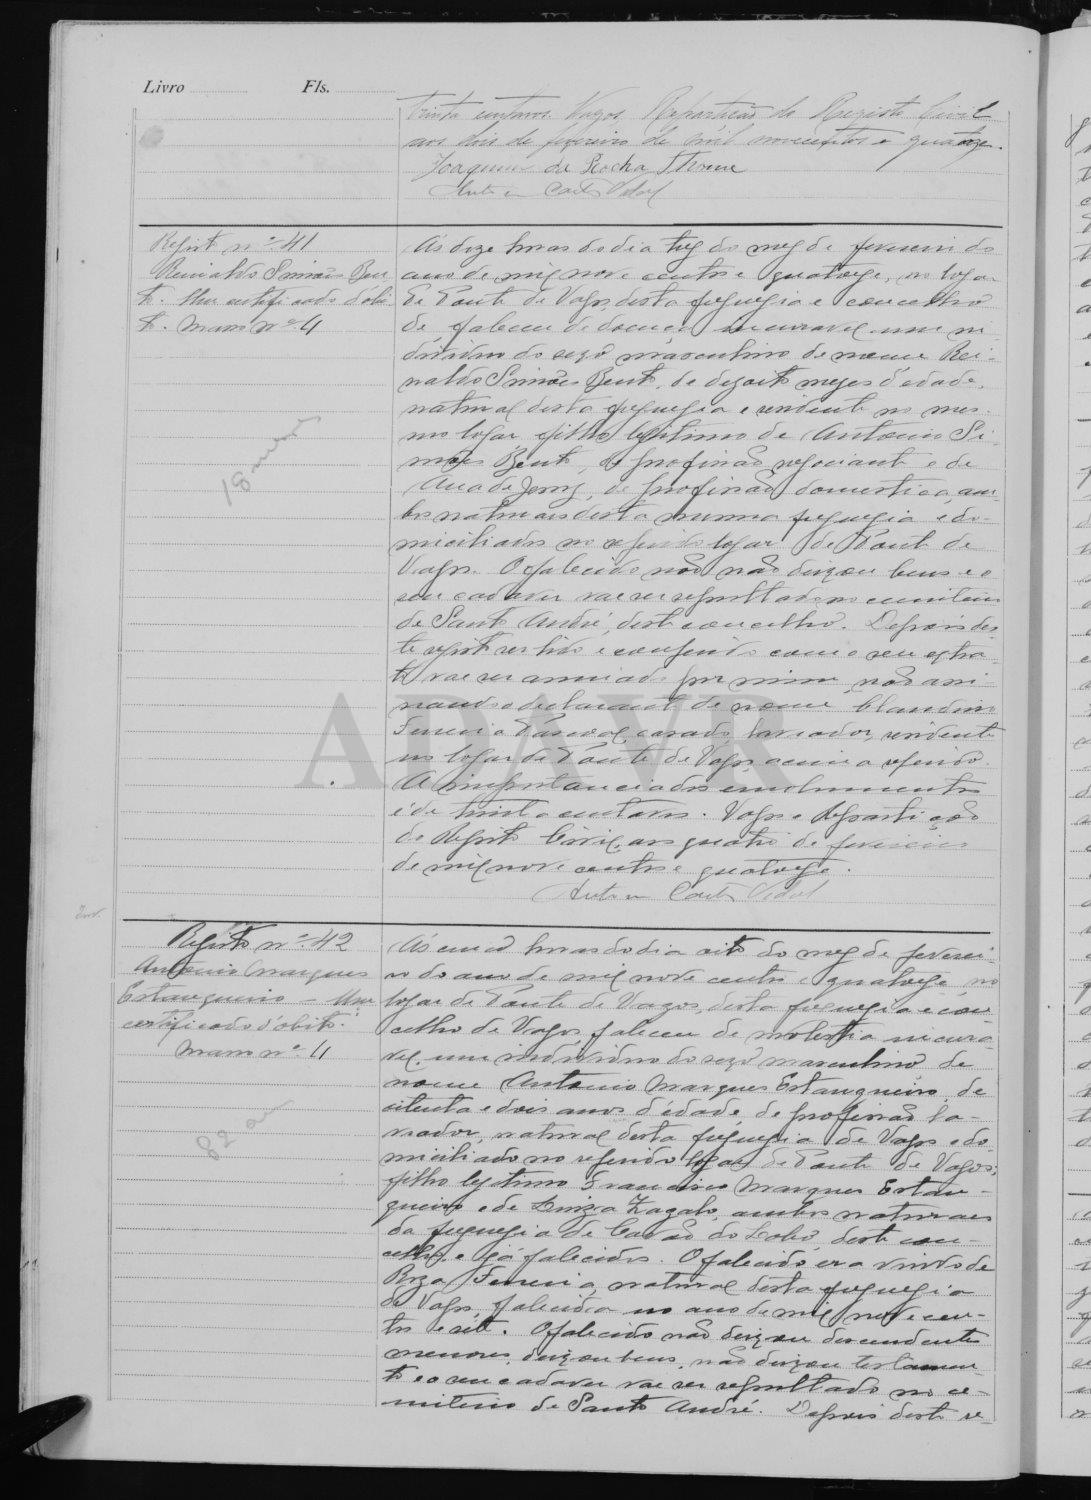 Livro Fls.
trinta centavos. Vagos, Repartição do Registo Civil
aos dois de fevereiro de mil novecentos e quatorze.
Joaquim da Rocha
Vidal
Registo nº 41
Reinaldo Simões Ben-
to. Um certificado d'óbi-
to. Maço nº 4
18 meses
Ás doze horas do dia trez do mez de fevereiro do
anno de mil nove centos e quatorze, no logar
de Ponte de Vagos, desta freguezia e concelho
de falleceu de doença incuravel um in-
dividuo do sexo masculino de nome Rei-
naldo Simões Bento, de dezoito mezes d'edade,
natural desta freguezia e residente no mes-
mo logar, filho legitimo de Antonio Si-
mões Bento, de profissão negociante e de
Anna de Jesus, de profissão domestica, am-
bos naturaes desta mesma freguezia e do-
miciliados no referido logar de Ponte de
Vagos. O falecido não não deixou bens e o
seu cadaver vae ser sepultado no cemiterio
de Santo André, deste concelho. Depois des-
te registo ser lido e conferido com o seu extra-
to vae ser assinado por mim, não assi-
nando o declarante de nome Claudino
Ferreira Pascoal, casado, lavrador, residente
no logar de Ponte de Vagos, acima referido.
A importancia dos emolumentos
é de trinta centavos. Vagos e Repartição
do Registo Civil, aos quatro de fevereiro
de mil nove centos e quatorze.
Vidal
Registo nº 42
Antonio Marques
Estanqueiro – Um
certificado d'obito.
Maço nº 4
82 an
Ás cinco horas do dia oito do mez de feverei-
ro do anno de mil nove centos e quatorze no
logar de Ponte de Vagos, desta freguezia e con-
celho de Vagos, faleceu de molestia incura-
vel, um individuo do sexo masculino de
nome Antonio Marques Estanqueiro, de
oitenta e dois annos d'edade, de profissão la-
vrador, natural desta freguezia de Vagos e do-
miciliado no referido logar de Ponte de Vagos;
filho legitimo Francisco Marques Estan-
queiro e de Luiza Zagalo, ambos naturaes
da freguezia de Covão do Lobo, deste con-
celho, e já falecidos. O falecido era viuvo de
Roza Ferreira, natural desta freguezia
de Vagos, falecida no anno de mil nove cen-
tos e sete. O falecido não deixou descendentes
menores, deixou bens, não deixou testamen-
to e o seu cadaver vae ser sepultado no ce-
miterio de Santo André. Depois deste re-
ADAVR